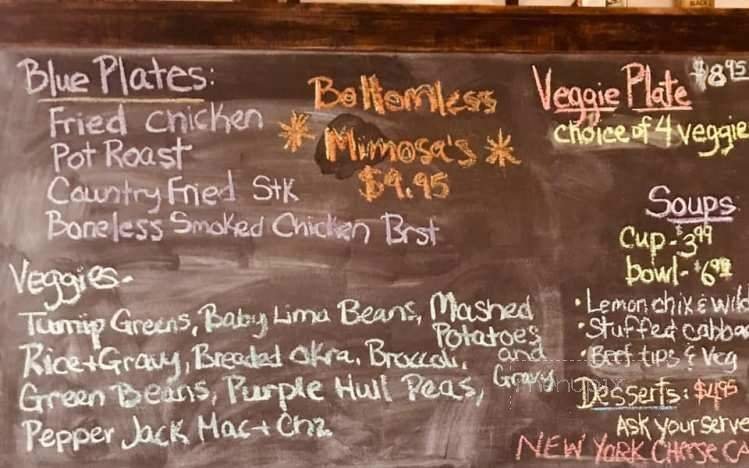 Blue Plates:
Fried chicken
Pot Roast
Country Fried Stk
Boneless Smoked Chicken Brst
Bottomless
* Mimosa's *
$9.95
Veggie Plate $8.95
choice of 4 veggie
Soups
Cup - $3.99
bowl - $6.99
• Lemon chik & wild
• Stuffed cabba
• Beef tips & Veg
Desserts: $4.95
Ask your serve
NEW YORK CHEESE CA
Veggies -
Turnip Greens, Baby Lima Beans, Mashed Potatoes and Gravy
Rice + Gravy, Breaded Okra, Broccoli,
Green Beans, Purple Hull Peas,
Pepper Jack Mac + Chz